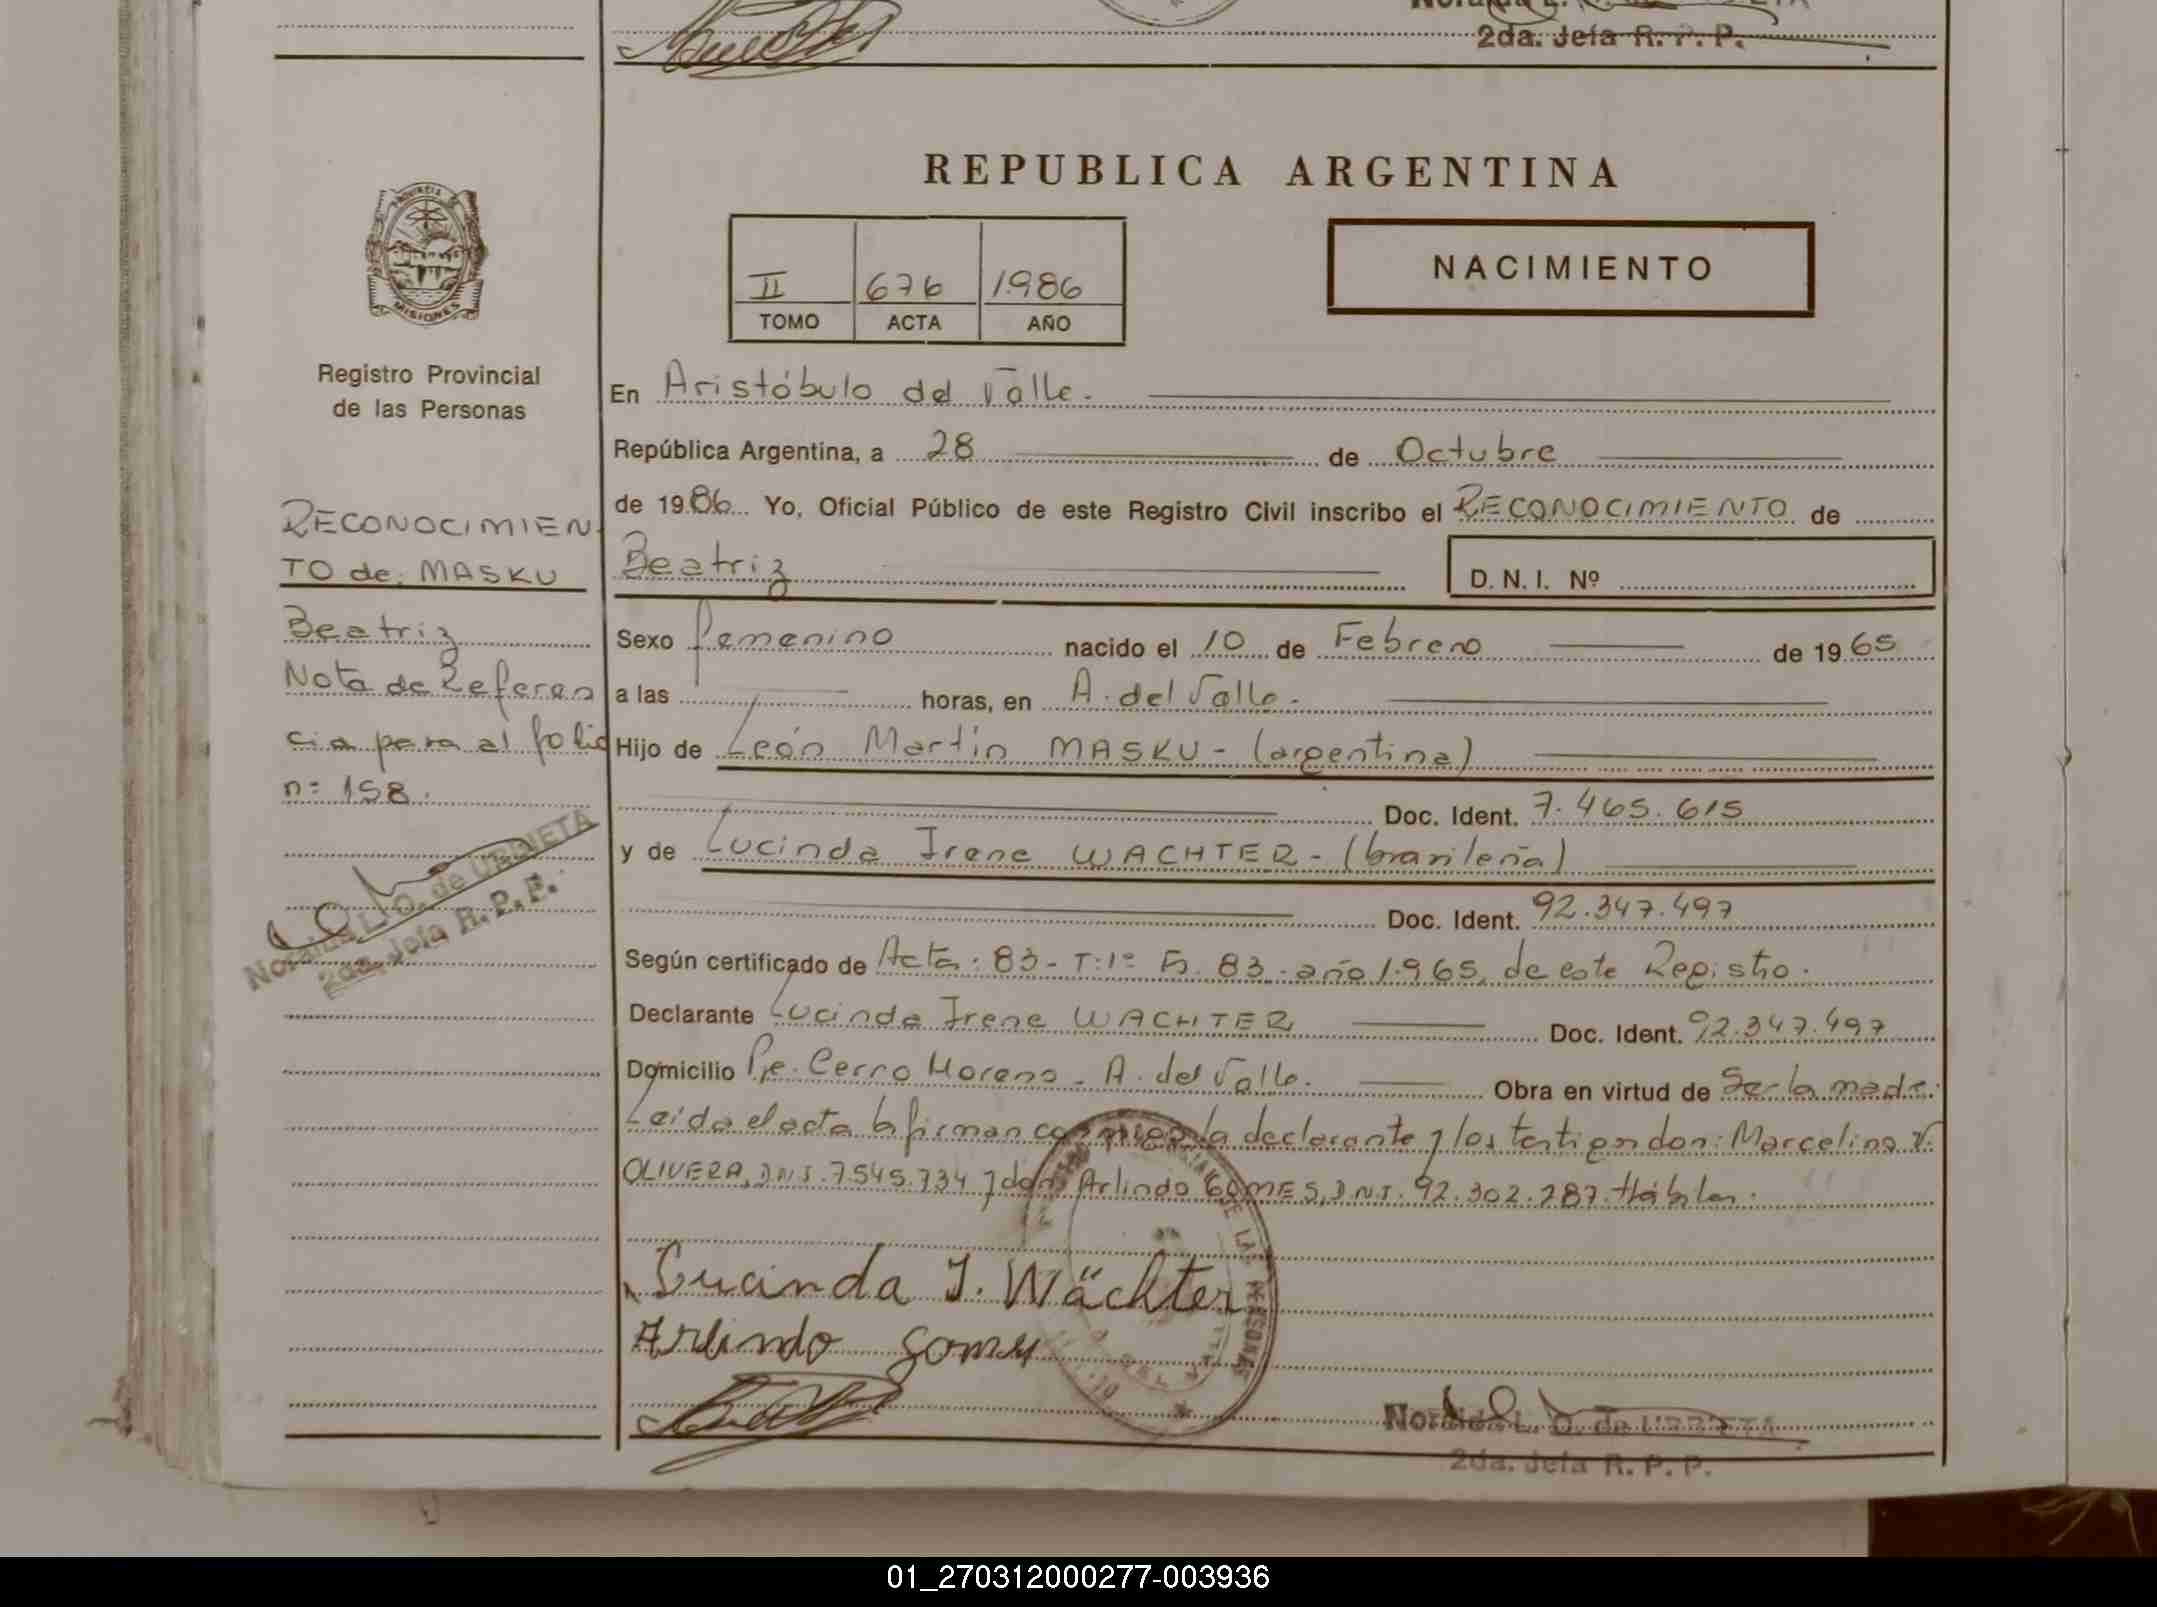 2da. Jefa R. P. P.
REPUBLICA ARGENTINA
PROVINCIA DE
MISIONES
II 676 1986
TOMO ACTA AÑO
NACIMIENTO
Registro Provincial
de las Personas
RECONOCIMIEN-
TO de: MASKU
Beatriz
Nota de Referen
cia para al folio
n= 158.
Noraida L. O. de URRIETA
2da. Jefa R. P. P.
En Aristóbulo del Valle.
República Argentina, a 28 de Octubre
de 1986. Yo, Oficial Público de este Registro Civil inscribo el RECONOCIMIENTO de
Beatriz D. N. I. Nº
Sexo femenino nacido el 10 de Febrero de 1965
a las horas, en A. del Valle.
Hijo de León Martín MASKU - (argentina)
Doc. Ident. 7.465.615
y de Lucinda Irene WACHTER - (brasileña)
Doc. Ident. 92.347.497
Según certificado de Acta: 83 - T: 1º Fº 83 - año 1.965, de este Registro.
Declarante Lucinda Irene WACHTER Doc. Ident. 92.347.497
Domicilio Pje. Cerro Moreno - A. del Valle. Obra en virtud de Ser la madre.
Leida el acta la firman conmigo la declarante y los testigos don: Marcelino V.
OLIVERA, D.N.I. 7.545.734 y don Arlindo GOMES, D.N.I. 92.302.287. Hábiles.
Lucinda I. Wächter
Arlindo Gomes
DE LAS PERSONAS
Noraida L. O. de URRIETA
2da. Jefa R. P. P.
01_270312000277-003936